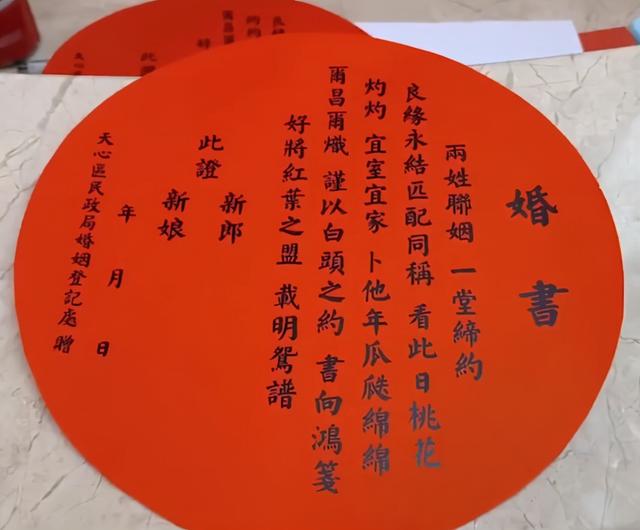 婚書
兩姓聯姻 一堂締約
良緣永結匹配同稱 看此日桃花
灼灼 宜室宜家 卜他年瓜瓞綿綿
爾昌爾熾 謹以白頭之約 書向鴻箋
好將紅葉之盟 載明鴛譜
此證
新郎
新娘
年 月 日
天心區民政局婚姻登記處贈